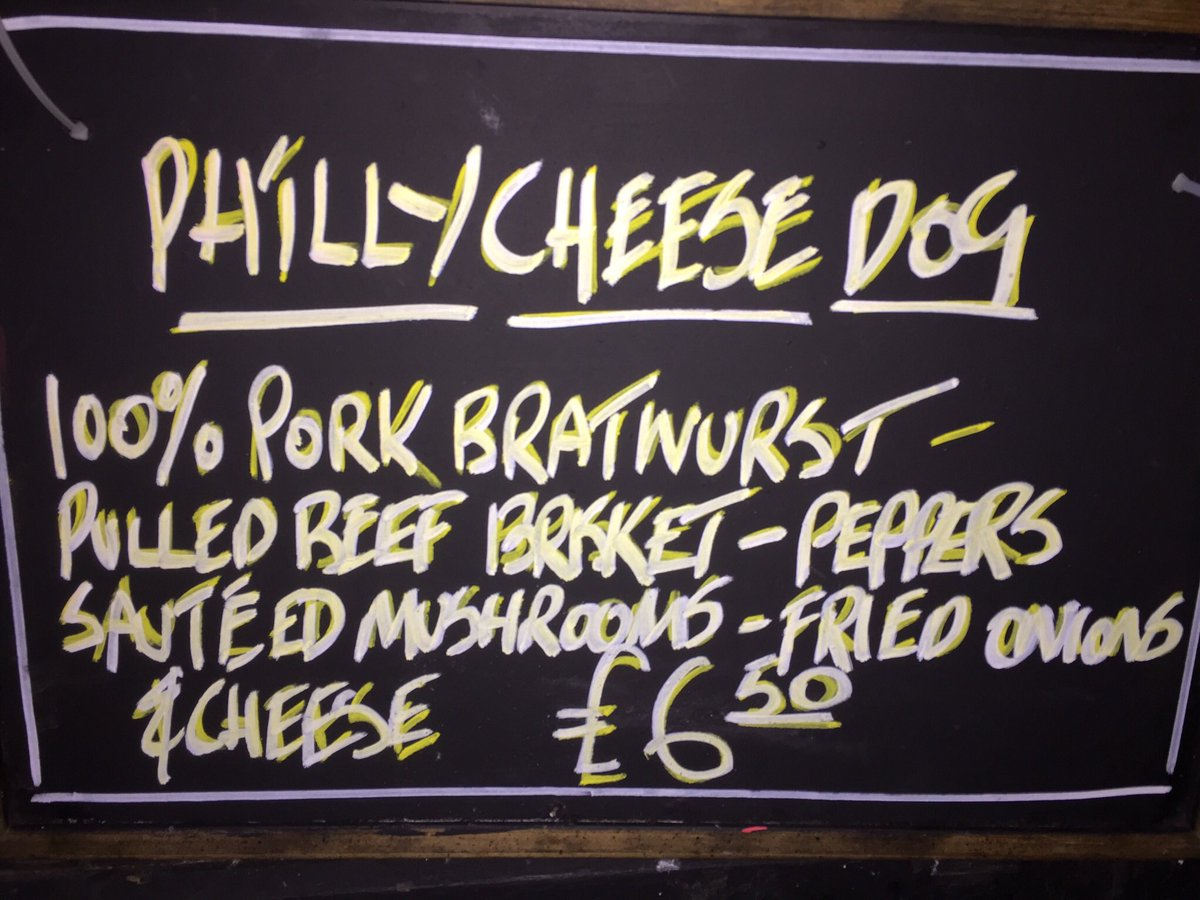 PHILLY CHEESE DOG
100% PORK BRATWURST -
PULLED BEEF BRISKET - PEPPERS
SAUTÉED MUSHROOMS - FRIED ONIONS
& CHEESE £6 50